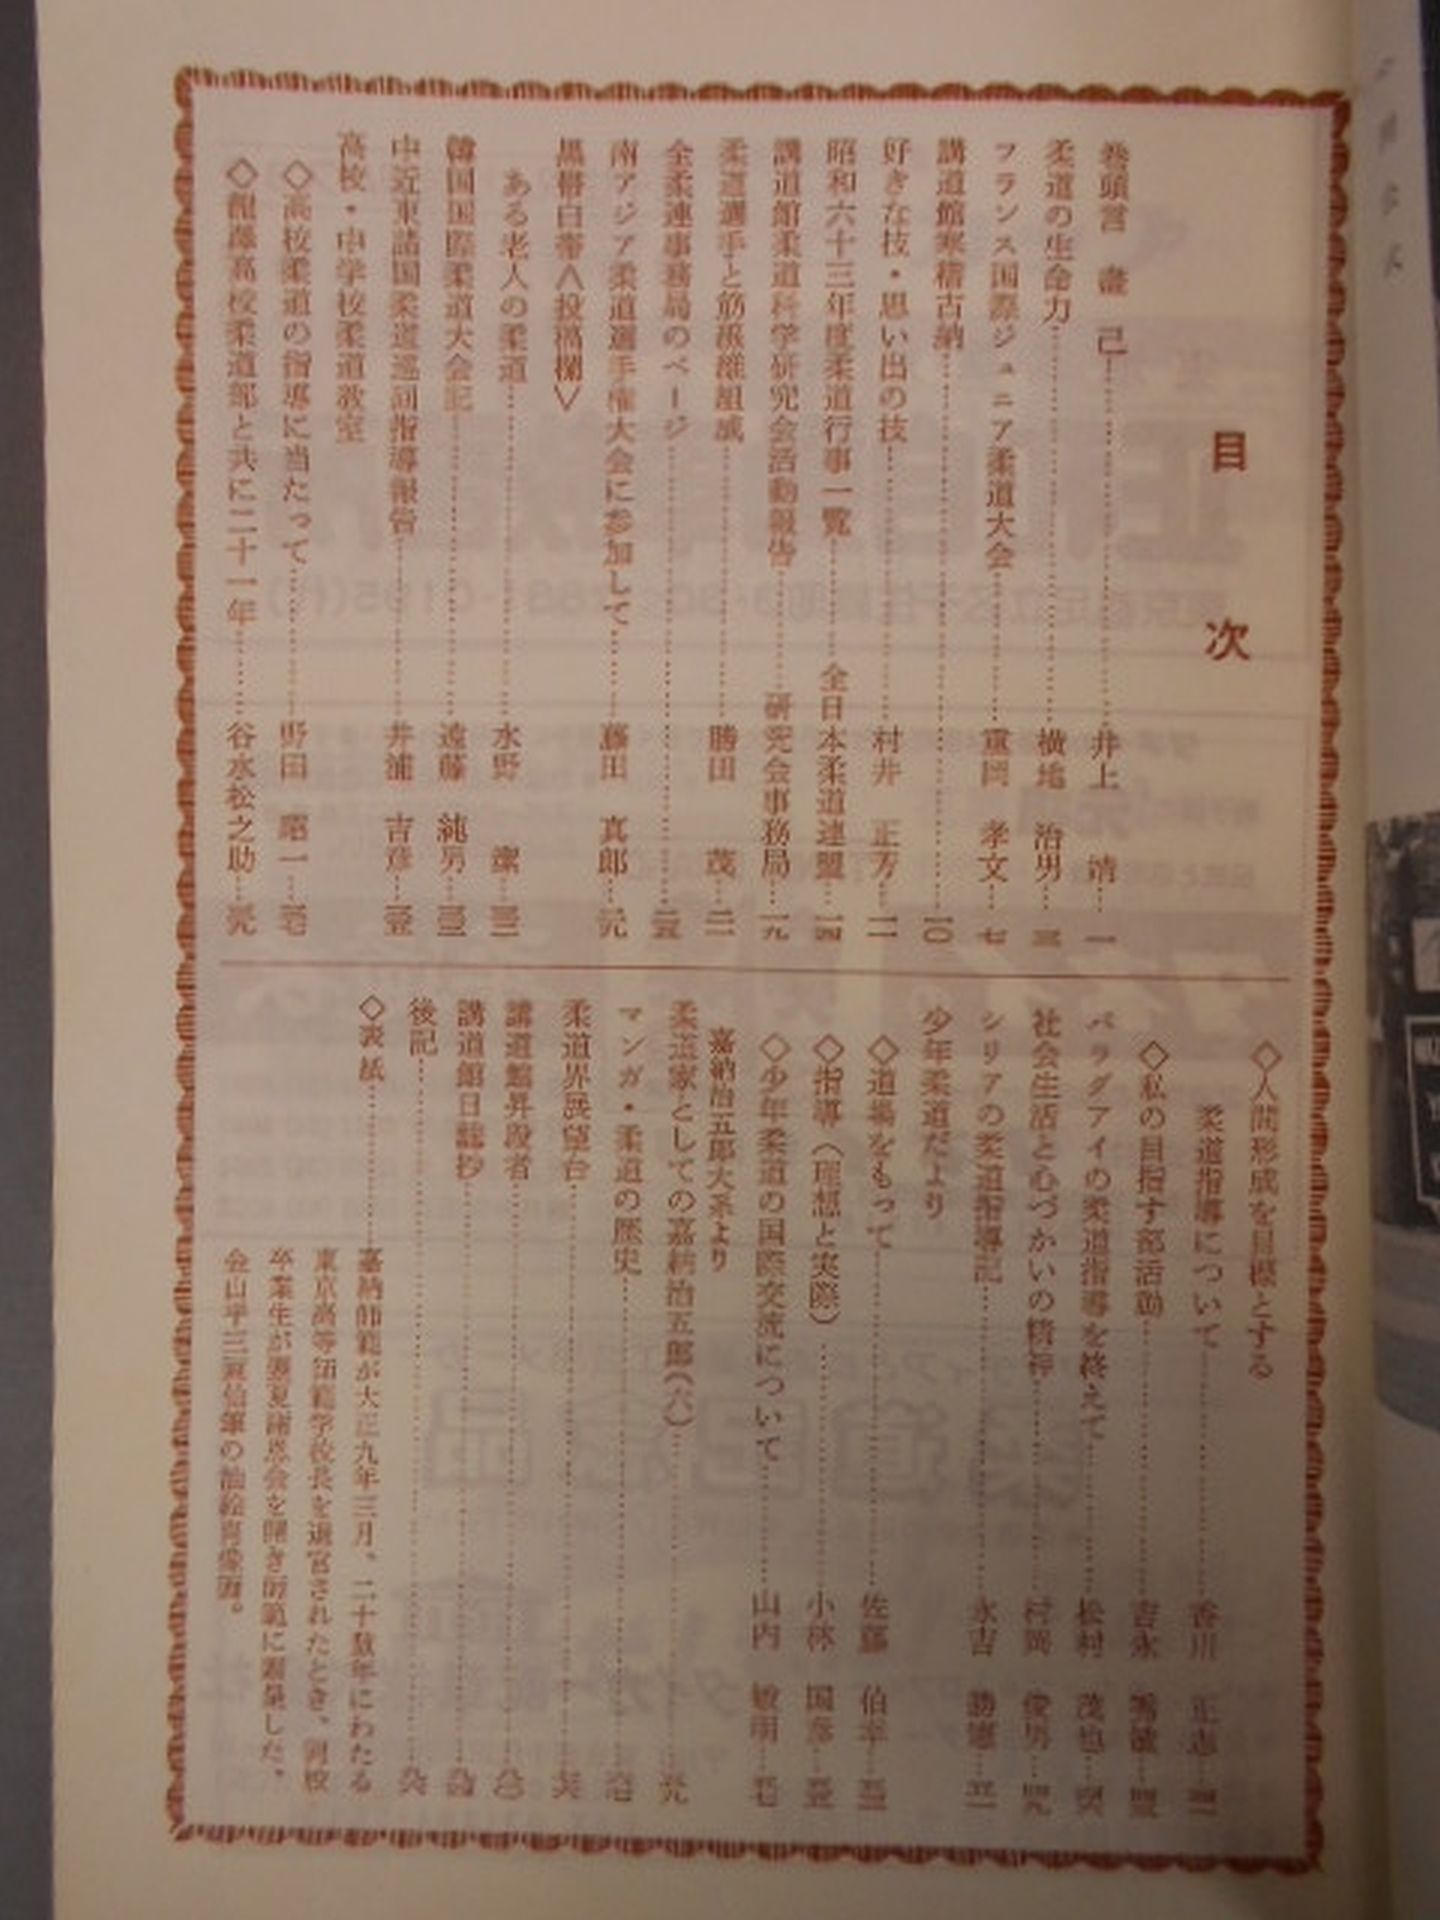 目次
巻頭言 盡己 井上 靖 一
柔道の生命力 横地 治男 三
フランス国際ジュニア柔道大会 重岡 孝文 七
講道館寒稽古納 一〇
好きな技・思い出の技 村井 正芳 一一
昭和六十三年度柔道行事一覧 全日本柔道連盟 一四
講道館柔道科学研究会活動報告 研究会事務局 一九
柔道選手と筋線維組成 勝田 茂 二一
全柔連事務局のページ 二五
南アジア柔道選手権大会に参加して 藤田 真郎 二九
黒帯白帯<投稿欄>
ある老人の柔道 水野 潔
韓国国際柔道大会記 遠藤 純男 三三
中近東諸国柔道巡回指導報告 井浦 吉彦 三五
高校・中学校柔道教室
◇高校柔道の指導に当たって 野田 昭一 三七
高校柔道部と共に二十一年 谷水松之助 三九
◇人間形成を目標とする
柔道指導について 香川 正志
◇私の目指す部活動 吉永
パラグアイの柔道指導を終えて 松村 茂也
社会生活と心づかいの精神 村岡 俊男 四九
シリアの柔道指導記 永吉 勝憲 五一
少年柔道だより
◇道場をもって 佐藤 伯幸
◇指導(理想と実際) 小林 国彦 五五
◇少年柔道の国際交流について 山内 敏明 五七
嘉納治五郎大系より
柔道家としての嘉納治五郎(八) 五九
マンガ・柔道の歴史 六七
柔道界展望台
講道館昇段者 八〇
講道館日誌抄 八四
後記 八六
◇表紙 嘉納師範が大正九年三月、二十数年にわたる
東京高等師範学校長を退官されたとき、同校
卒業生が謝恩会を開き師範に贈呈した、
金山平三画伯筆の油絵肖像画。